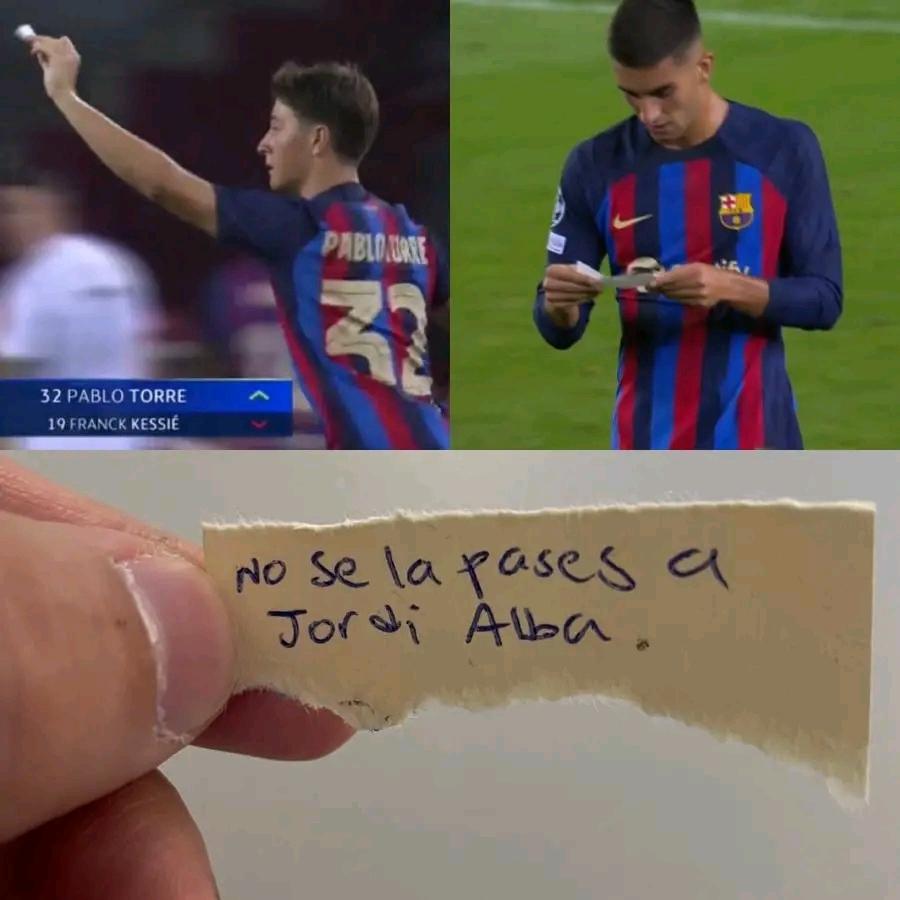 PABLO TORRE
32
32 PABLO TORRE
19 FRANCK KESSIÉ
No se la pases a
Jordi Alba.